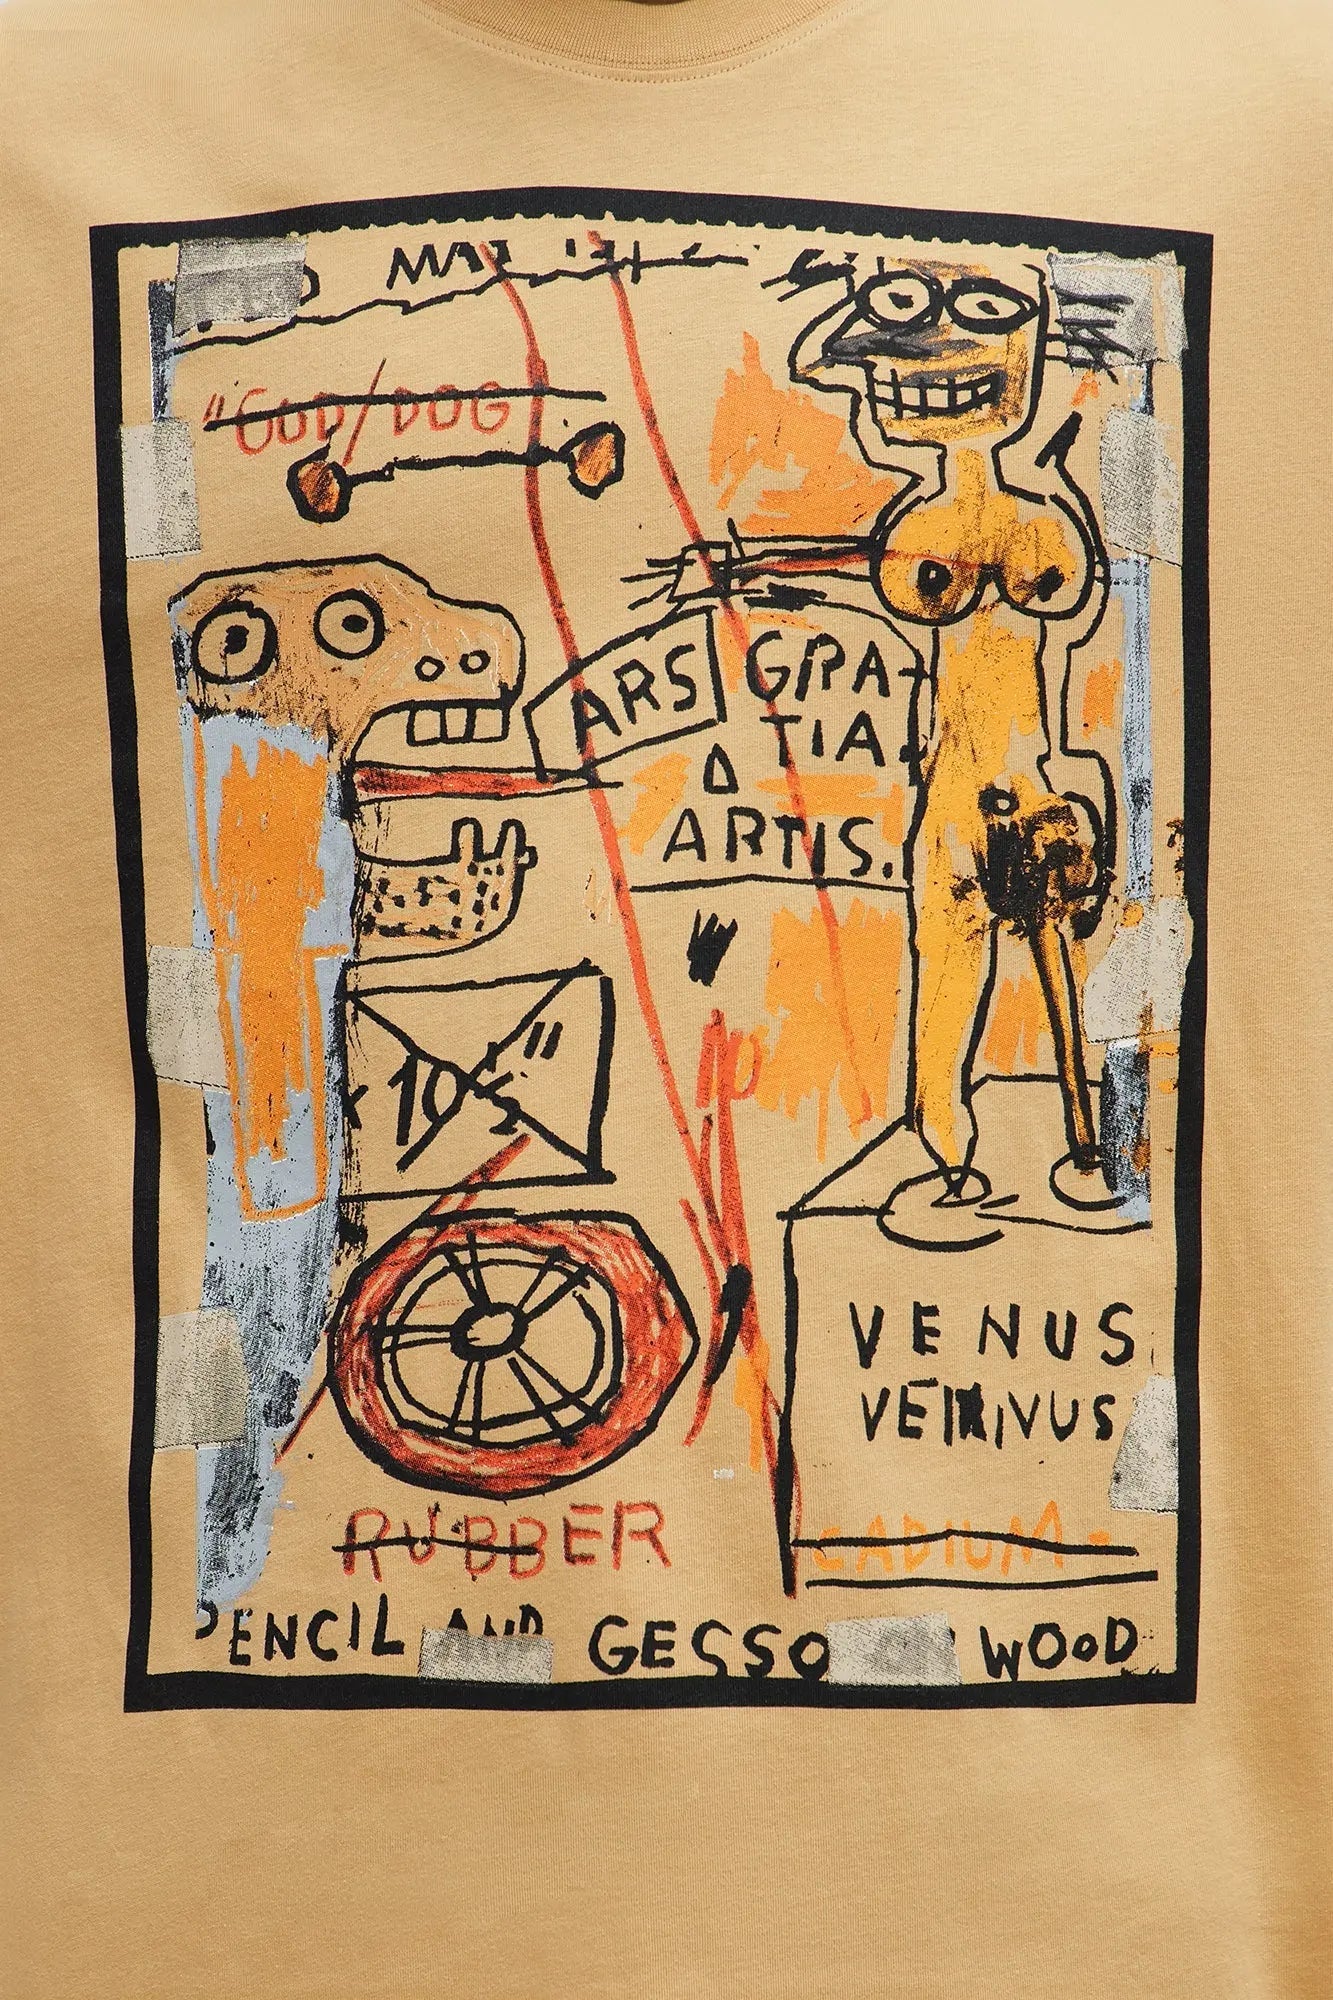 "GOD/DOG
ARS
GRA-
TIA
ARTIS.
10
VENUS
RUBBER
CADIUM-
PENCIL AND GESSO WOOD